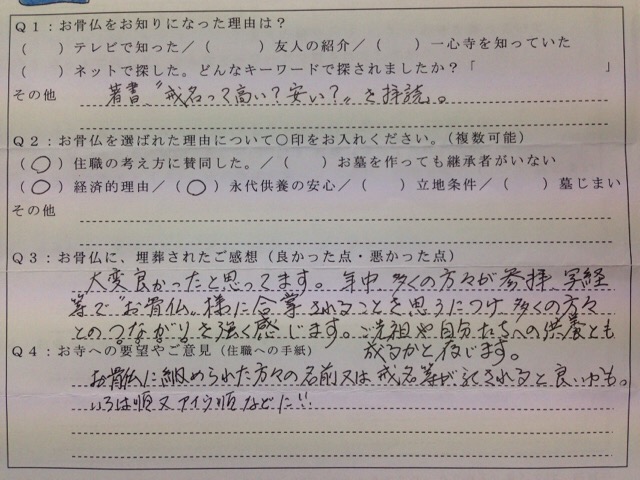 Q1：お骨仏をお知りになった理由は？
（　）テレビで知った／（　）友人の紹介／（　）一心寺を知っていた
（　）ネットで探した。どんなキーワードで探されましたか？「　」
その他 著書〝戒名って高い？安い？〟を拝読。
Q2：お骨仏を選ばれた理由について〇印をお入れください。（複数可能）
（〇）住職の考え方に賛同した。／（　）お墓を作っても継承者がいない
（〇）経済的理由／（〇）永代供養の安心／（　）立地条件／（　）墓じまい
その他
Q3：お骨仏に、埋葬されたご感想（良かった点・悪かった点）
大変良かったと思ってます。年中、多くの方々が参拝、写経
等で〝お骨仏〟様に合掌されることを思うにつけ多くの方々
とのつながりを強く感じます。ご先祖や自分たちへの供養とも
成るかと存じます。
Q4：お寺への要望やご意見（住職への手紙）
お骨仏に納められた方々の名前又は戒名等が記されると良いかも。
いろは順又アイウ順などに!!